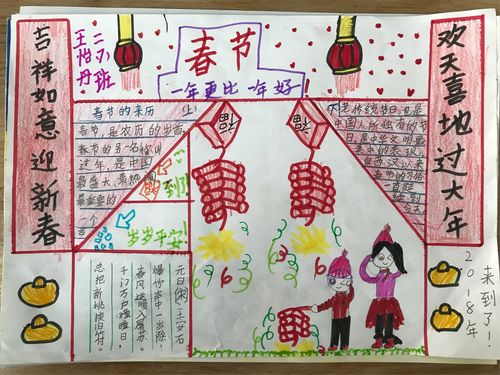 春节
一年更比一年好!
二(5)班
王怡丹
吉祥如意迎新春
欢天喜地过大年
春节的来历
春节,是农历的岁首,
春节的另一名称叫
过年,是中国
最盛大、最热闹、
最重要的
一个
古
老传统节日,也是
中国人所独有的节
日。是中华文明最
自西汉以来,
春节的习俗
一直延
续到
今天。
福
福
到了
岁岁平安!
元日(宋)王安石
爆竹声中一岁除,
春风送暖入屠苏。
千门万户曈曈日,
总把新桃换旧符。
2018年
来到了!